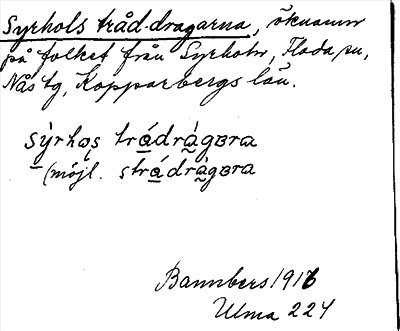 Syrhols tråd-dragarna, öknamn
på folket från Syrholn, Floda sn,
Nås tg, Kopparbergs län.
sy̍rhǫs trádràgɐra
(möjl. strádràgɐra
Bannbers 1916
Ulma 224